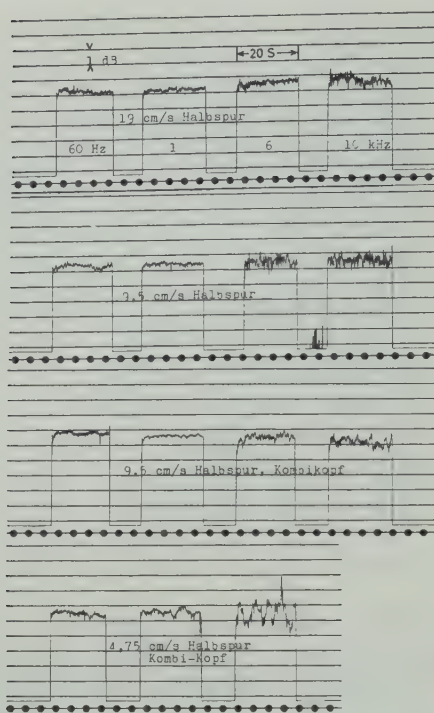 dB
20 S
19 cm/s Halbspur
60 Hz 1 6 14 kHz
9,5 cm/s Halbspur
9.5 cm/s Halbspur, Kombikopf
4,75 cm/s Halbspur
Kombi-Kopf